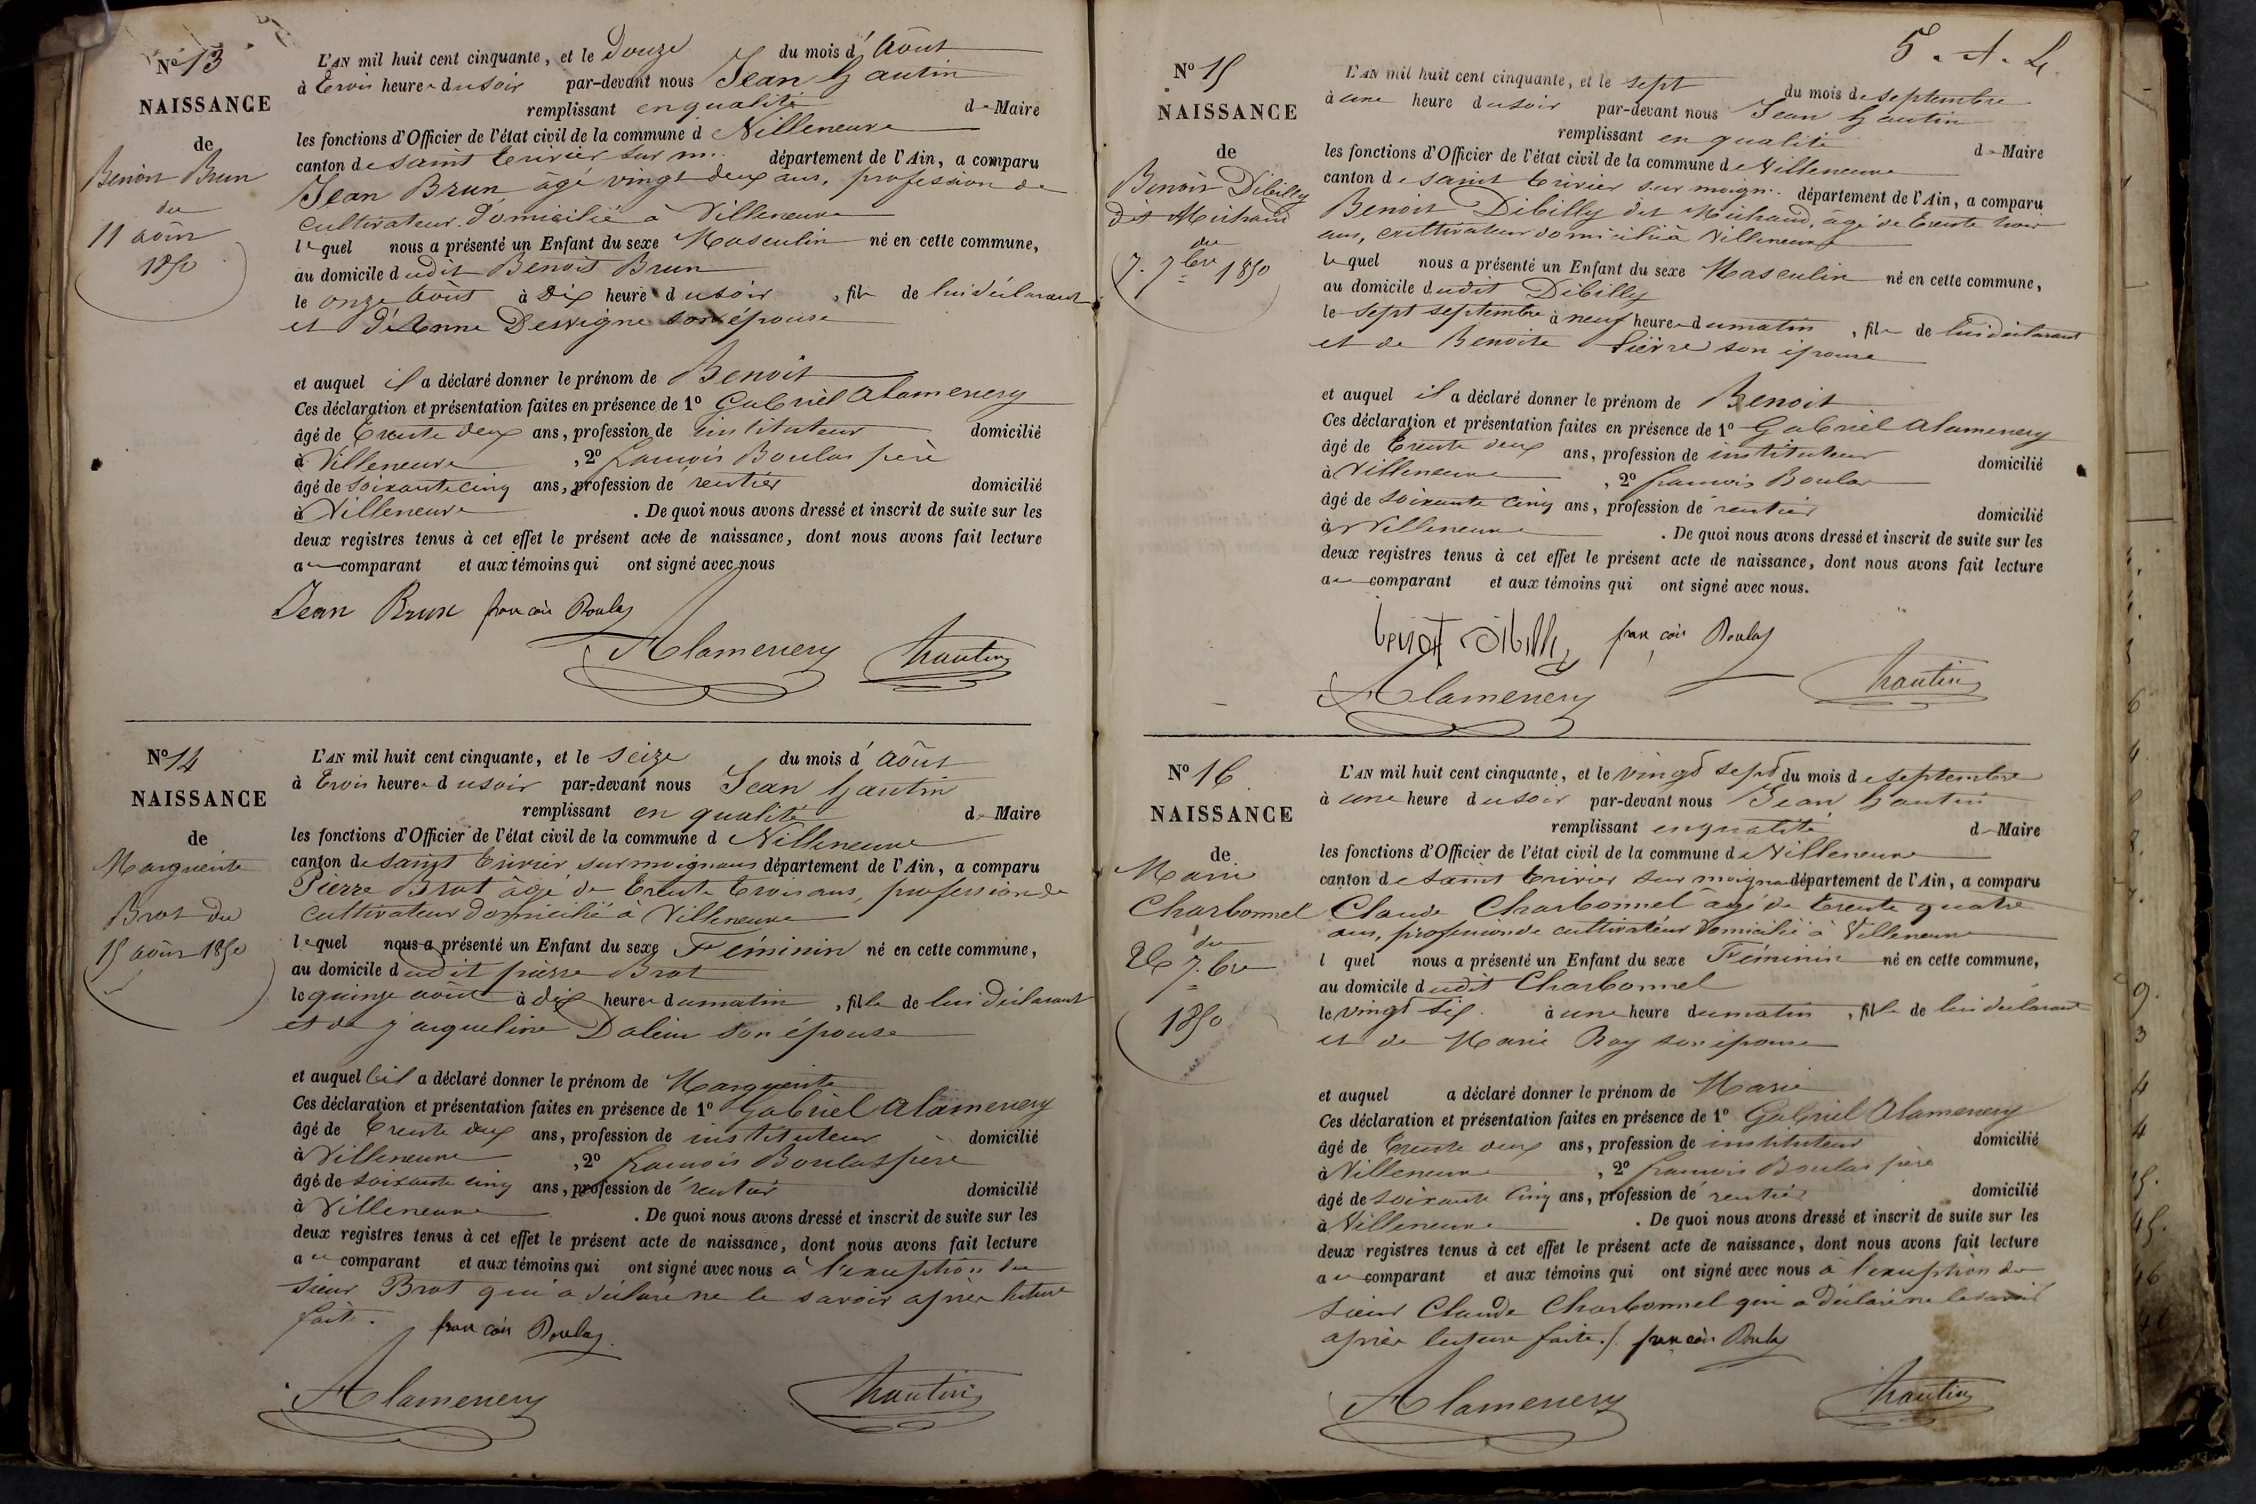 Nº 13
NAISSANCE
de
Benoit Brun
du
11 août
1850
L'AN mil huit cent cinquante, et le Douze du mois d'Août
à trois heures du soir par-devant nous Jean Hautin
remplissant en qualité de Maire
les fonctions d'Officier de l'état civil de la commune d Villeneuve
canton de saint trivier sur m.. département de l'Ain, a comparu
Jean Brun âgé vingt deux ans, profession de
cultivateur domicilié à Villeneuve
lequel nous a présenté un Enfant du sexe Masculin né en cette commune,
au domicile dudit Benoit Brun
le onze Août à dix heures du soir, fils de lui déclarant
et d'Anne Desvigne son épouse
et auquel il a déclaré donner le prénom de Benoit
Ces déclaration et présentation faites en présence de 1º Gabriel Alamenery
âgé de trente deux ans, profession de instituteur domicilié
à Villeneuve, 2º françois Boulas père
âgé de soixante cinq ans, profession de rentier domicilié
à Villeneuve. De quoi nous avons dressé et inscrit de suite sur les
deux registres tenus à cet effet le présent acte de naissance, dont nous avons fait lecture
au comparant et aux témoins qui ont signé avec nous
Jean Brun françois Boulas
Alamenery hautin
Nº 14
NAISSANCE
de
Marguerite
Brot du
15 août 1850
L'AN mil huit cent cinquante, et le seize du mois d'Août
à trois heures du soir par-devant nous Jean Hautin
remplissant en qualité de Maire
les fonctions d'Officier de l'état civil de la commune d Villeneuve
canton de saint trivier sur moignans département de l'Ain, a comparu
Pierre Brot âgé de trente trois ans, profession de
cultivateur domicilié à Villeneuve
lequel nous a présenté un Enfant du sexe Féminin né en cette commune,
au domicile dudit pierre Brot
le quinze août à dix heures du matin, fille de lui déclarant
et de jacqueline Dalein son épouse
et auquel il a déclaré donner le prénom de Marguerite
Ces déclaration et présentation faites en présence de 1º Gabriel Alamenery
âgé de trente deux ans, profession de instituteur domicilié
à Villeneuve, 2º françois Boulas père
âgé de soixante cinq ans, profession de rentier domicilié
à Villeneuve. De quoi nous avons dressé et inscrit de suite sur les
deux registres tenus à cet effet le présent acte de naissance, dont nous avons fait lecture
au comparant et aux témoins qui ont signé avec nous à l'exception du
sieur Brot qui a déclaré ne le savoir après lecture
faite. françois Boulas
Alamenery hautin
5. A. L.
Nº 15
NAISSANCE
de
Benoit Dibilly
dit Michaud
du
7. 7bre 1850
L'AN mil huit cent cinquante, et le sept du mois de septembre
à une heure du soir par-devant nous Jean Hautin
remplissant en qualité de Maire
les fonctions d'Officier de l'état civil de la commune de Villeneuve
canton de saint trivier sur moign.. département de l'Ain, a comparu
Benoit Dibilly dit Michaud, âgé de trente trois
ans, cultivateur domicilié à Villeneuve
lequel nous a présenté un Enfant du sexe Masculin né en cette commune,
au domicile dudit Dibilly
le sept septembre à neuf heures du matin, fils de lui déclarant
et de Benoite son épouse
et auquel il a déclaré donner le prénom de Benoit
Ces déclaration et présentation faites en présence de 1º Gabriel Alamenery
âgé de trente deux ans, profession de instituteur domicilié
à Villeneuve, 2º françois Boulas
âgé de soixante cinq ans, profession de rentier domicilié
à Villeneuve. De quoi nous avons dressé et inscrit de suite sur les
deux registres tenus à cet effet le présent acte de naissance, dont nous avons fait lecture
au comparant et aux témoins qui ont signé avec nous.
benoit dibilly françois Boulas
Alamenery hautin
Nº 16
NAISSANCE
de
Marie
Charbonnel
du
26 7.bre
1850
L'AN mil huit cent cinquante, et le vingt sept du mois de septembre
à une heure du soir par-devant nous Jean Hautin
remplissant en qualité de Maire
les fonctions d'Officier de l'état civil de la commune de Villeneuve
canton de saint trivier sur moignans département de l'Ain, a comparu
Claude Charbonnel âgé de trente quatre
ans, profession de cultivateur domicilié à Villeneuve
l quel nous a présenté un Enfant du sexe Féminin né en cette commune,
au domicile dudit Charbonnel
le vingt six. à une heure du matin, fille de lui déclarant
et de Marie Ray son épouse
et auquel a déclaré donner le prénom de Marie
Ces déclaration et présentation faites en présence de 1º Gabriel Alamenery
âgé de trente deux ans, profession de instituteur domicilié
à Villeneuve, 2º françois Boulas père
âgé de soixante cinq ans, profession de rentier domicilié
à Villeneuve. De quoi nous avons dressé et inscrit de suite sur les
deux registres tenus à cet effet le présent acte de naissance, dont nous avons fait lecture
au comparant et aux témoins qui ont signé avec nous à l'exception du
sieur Claude Charbonnel qui a déclaré ne le savoir
après lecture faite./. françois Boulas
Alamenery hautin